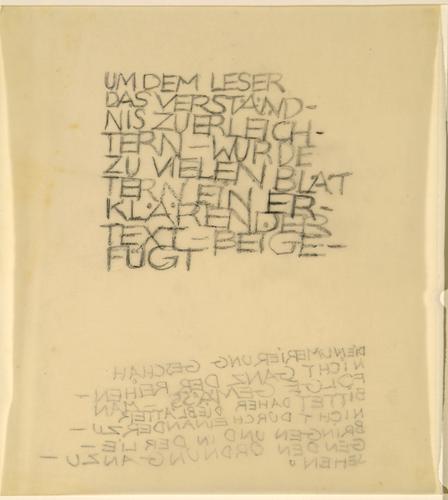 UM DEM LESER
DAS VERSTÄND-
NIS ZU ERLEICH-
TERN – WURDE
ZU VIELEN BLÄT
TERN EIN ER-
KLÄRENDER
TEXT – BEIGE-
FÜGT
DIE NUMERIERUNG GESCHAH
NICHT GANZ DER REIHEN-
FOLGE GEMÄSS – MAN
BITTET DAHER DIE BLÄTTER
NICHT DURCHEINANDER ZU-
BRINGEN UND IN DER LIE-
GENDEN ORDNUNG ANZU-
SEHEN.